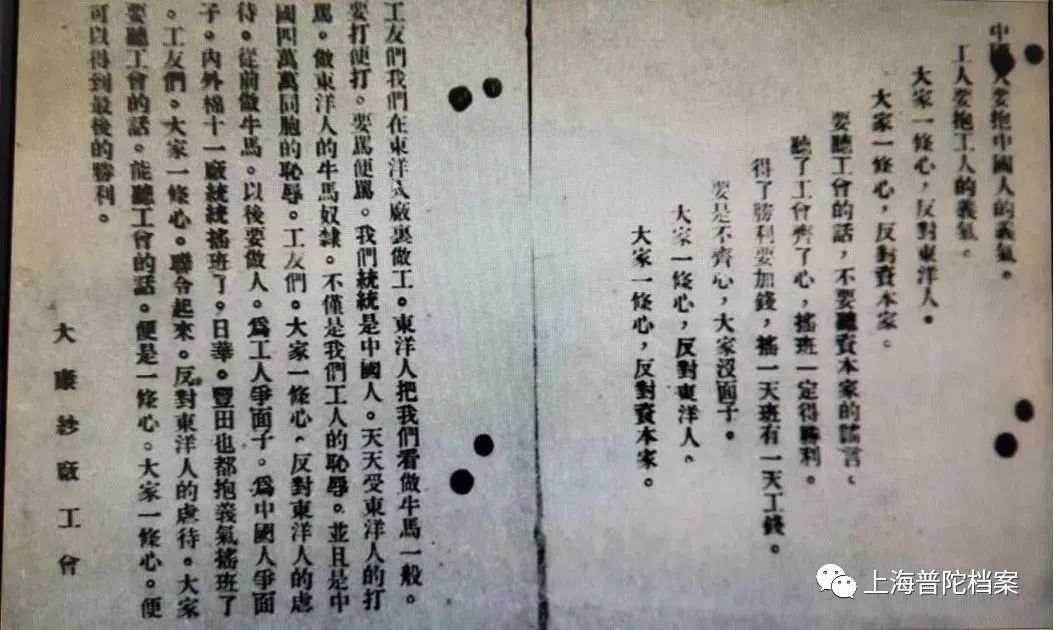 中國人要抱中國人的義氣。
工人要抱工人的義氣。
大家一條心，反對東洋人。
大家一條心，反對資本家。
要聽工會的話，不要聽資本家的謠言、
聽了工會齊了心，搖班一定得勝利。
得了勝利要加錢，搖一天班有一天工錢。
要是不齊心，大家沒面子。
大家一條心，反對東洋人。
大家一條心，反對資本家。
工友們我們在東洋人廠裏做工。東洋人把我們看做牛馬一般。
要打便打。要罵便罵。我們統統是中國人。天天受東洋人的打
罵。做東洋人的牛馬奴隸。不僅是我們工人的恥辱。並且是中
國四萬萬同胞的恥辱。工友們。大家一條心。反對東洋人的虐
待。從前做牛馬。以後要做人。爲工人爭面子。爲中國人爭面
子。內外棉十一廠統統搖班了。日華。豐田也都抱義氣搖班了
。工友們。大家一條心。聯合起來。反對東洋人的虐待。大家
要聽工會的話。能聽工會的話。便是一條心。大家一條心。便
可以得到最後的勝利。
大康紗廠工會
上海普陀档案